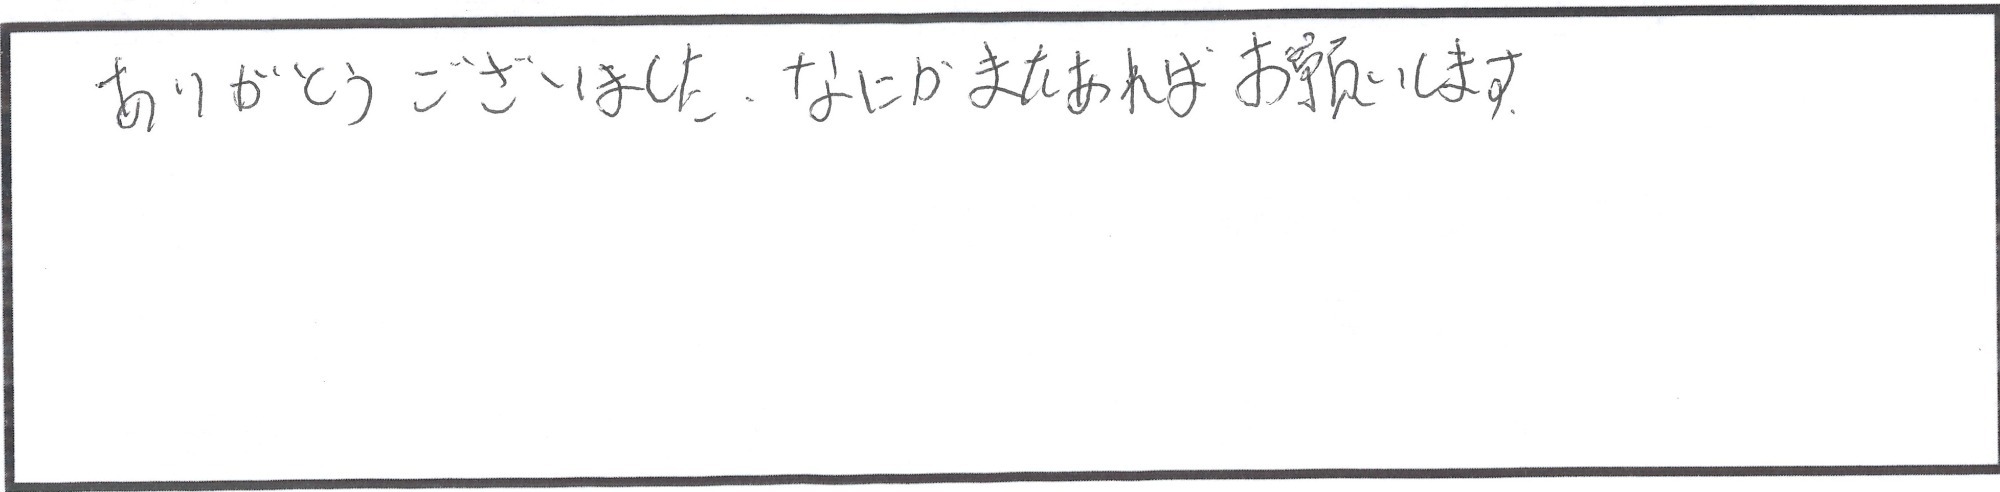 ありがとうございました. なにかまたあればお願いします.